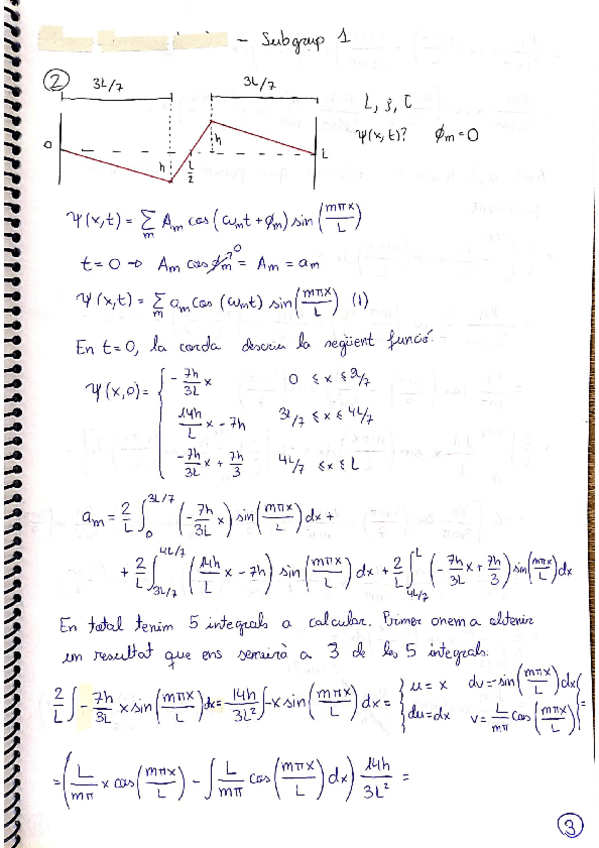 - Subgrup 1
2
3L/7 3L/7
L, ρ, τ
ψ(x,t)? ϕm=0
0 h L/2 h L
ψ(x,t) = Σm Am cos(ωmt+ϕm) sin(mπx/L)
t=0 → Am cos ϕm⁰ = Am = am
ψ(x,t) = Σm am cos(ωmt) sin(mπx/L) (1)
En t=0, la corda descriu la següent funció:
ψ(x,0) = { -7h/3L x 0 ≤ x ≤ 3L/7
14h/L x - 7h 3L/7 ≤ x ≤ 4L/7
-7h/3L x + 7h/3 4L/7 ≤ x ≤ L
am = 2/L ∫₀^(3L/7) (-7h/3L x) sin(mπx/L) dx +
+ 2/L ∫_(3L/7)^(4L/7) (14h/L x - 7h) sin(mπx/L) dx + 2/L ∫_(4L/7)^L (-7h/3L x + 7h/3) sin(mπx/L) dx
En total tenim 5 integrals a calcular. Primer anem a obtenir
un resultat que ens servirà a 3 de les 5 integrals.
2/L ∫ -7h/3L x sin(mπx/L) dx = 14h/3L² ∫ -x sin(mπx/L) dx = { u = x dv = -sin(mπx/L) dx
du = dx v = L/mπ cos(mπx/L) } =
= (L/mπ x cos(mπx/L) - ∫ L/mπ cos(mπx/L) dx) 14h/3L² =
3